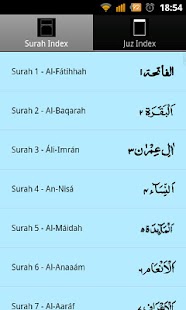 18:54
Surah Index
Juz Index
Surah 1 - Al-Fátihhah
الفاتحة ١
Surah 2 - Al-Baqarah
البقرة ٢
Surah 3 - Áli-Imrán
اٰل عمرٰن ٣
Surah 4 - An-Nisá
النسآء ٤
Surah 5 - Al-Máidah
المآئدة ٥
Surah 6 - Al-Anaaám
الانعام ٦
Surah 7 - Al-Aaráf